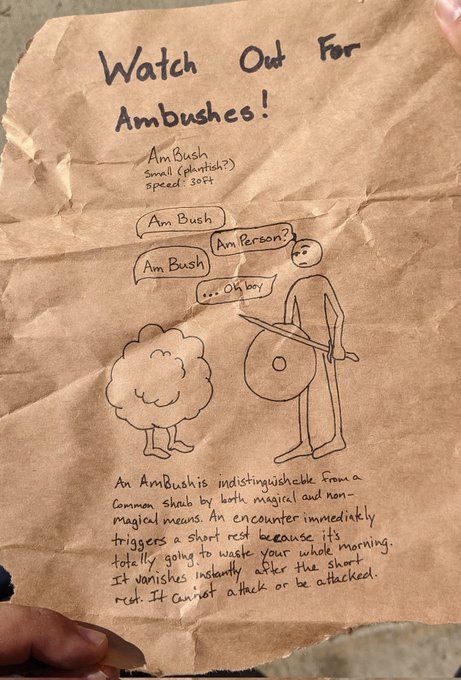 Watch Out For
Ambushes!
AmBush
Small (plantish?)
speed: 30ft
Am Bush
Am Person?
Am Bush
... Oh boy
An AmBush is indistinguishable from a
common shrub by both magical and non-
magical means. An encounter immediately
triggers a short rest because it's
totally going to waste your whole morning.
It vanishes instantly after the short
rest. It cannot attack or be attacked.